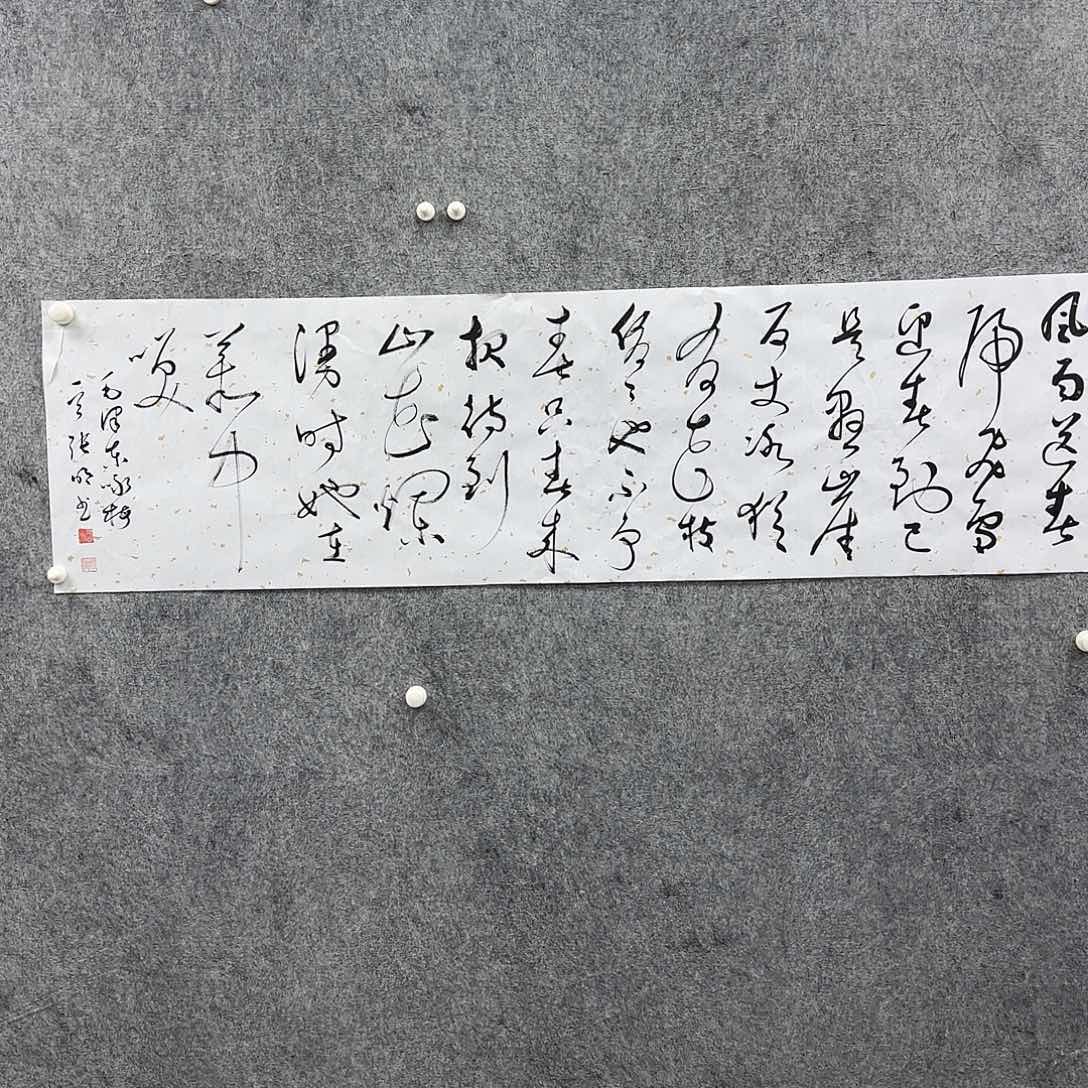 风雨送春
归飞雪
迎春到已
是悬崖
百丈冰犹
有花枝
俏〻也不争
春只春来
报待到
山花烂
漫时她在
丛中
笑
毛泽东咏梅
一首张明书